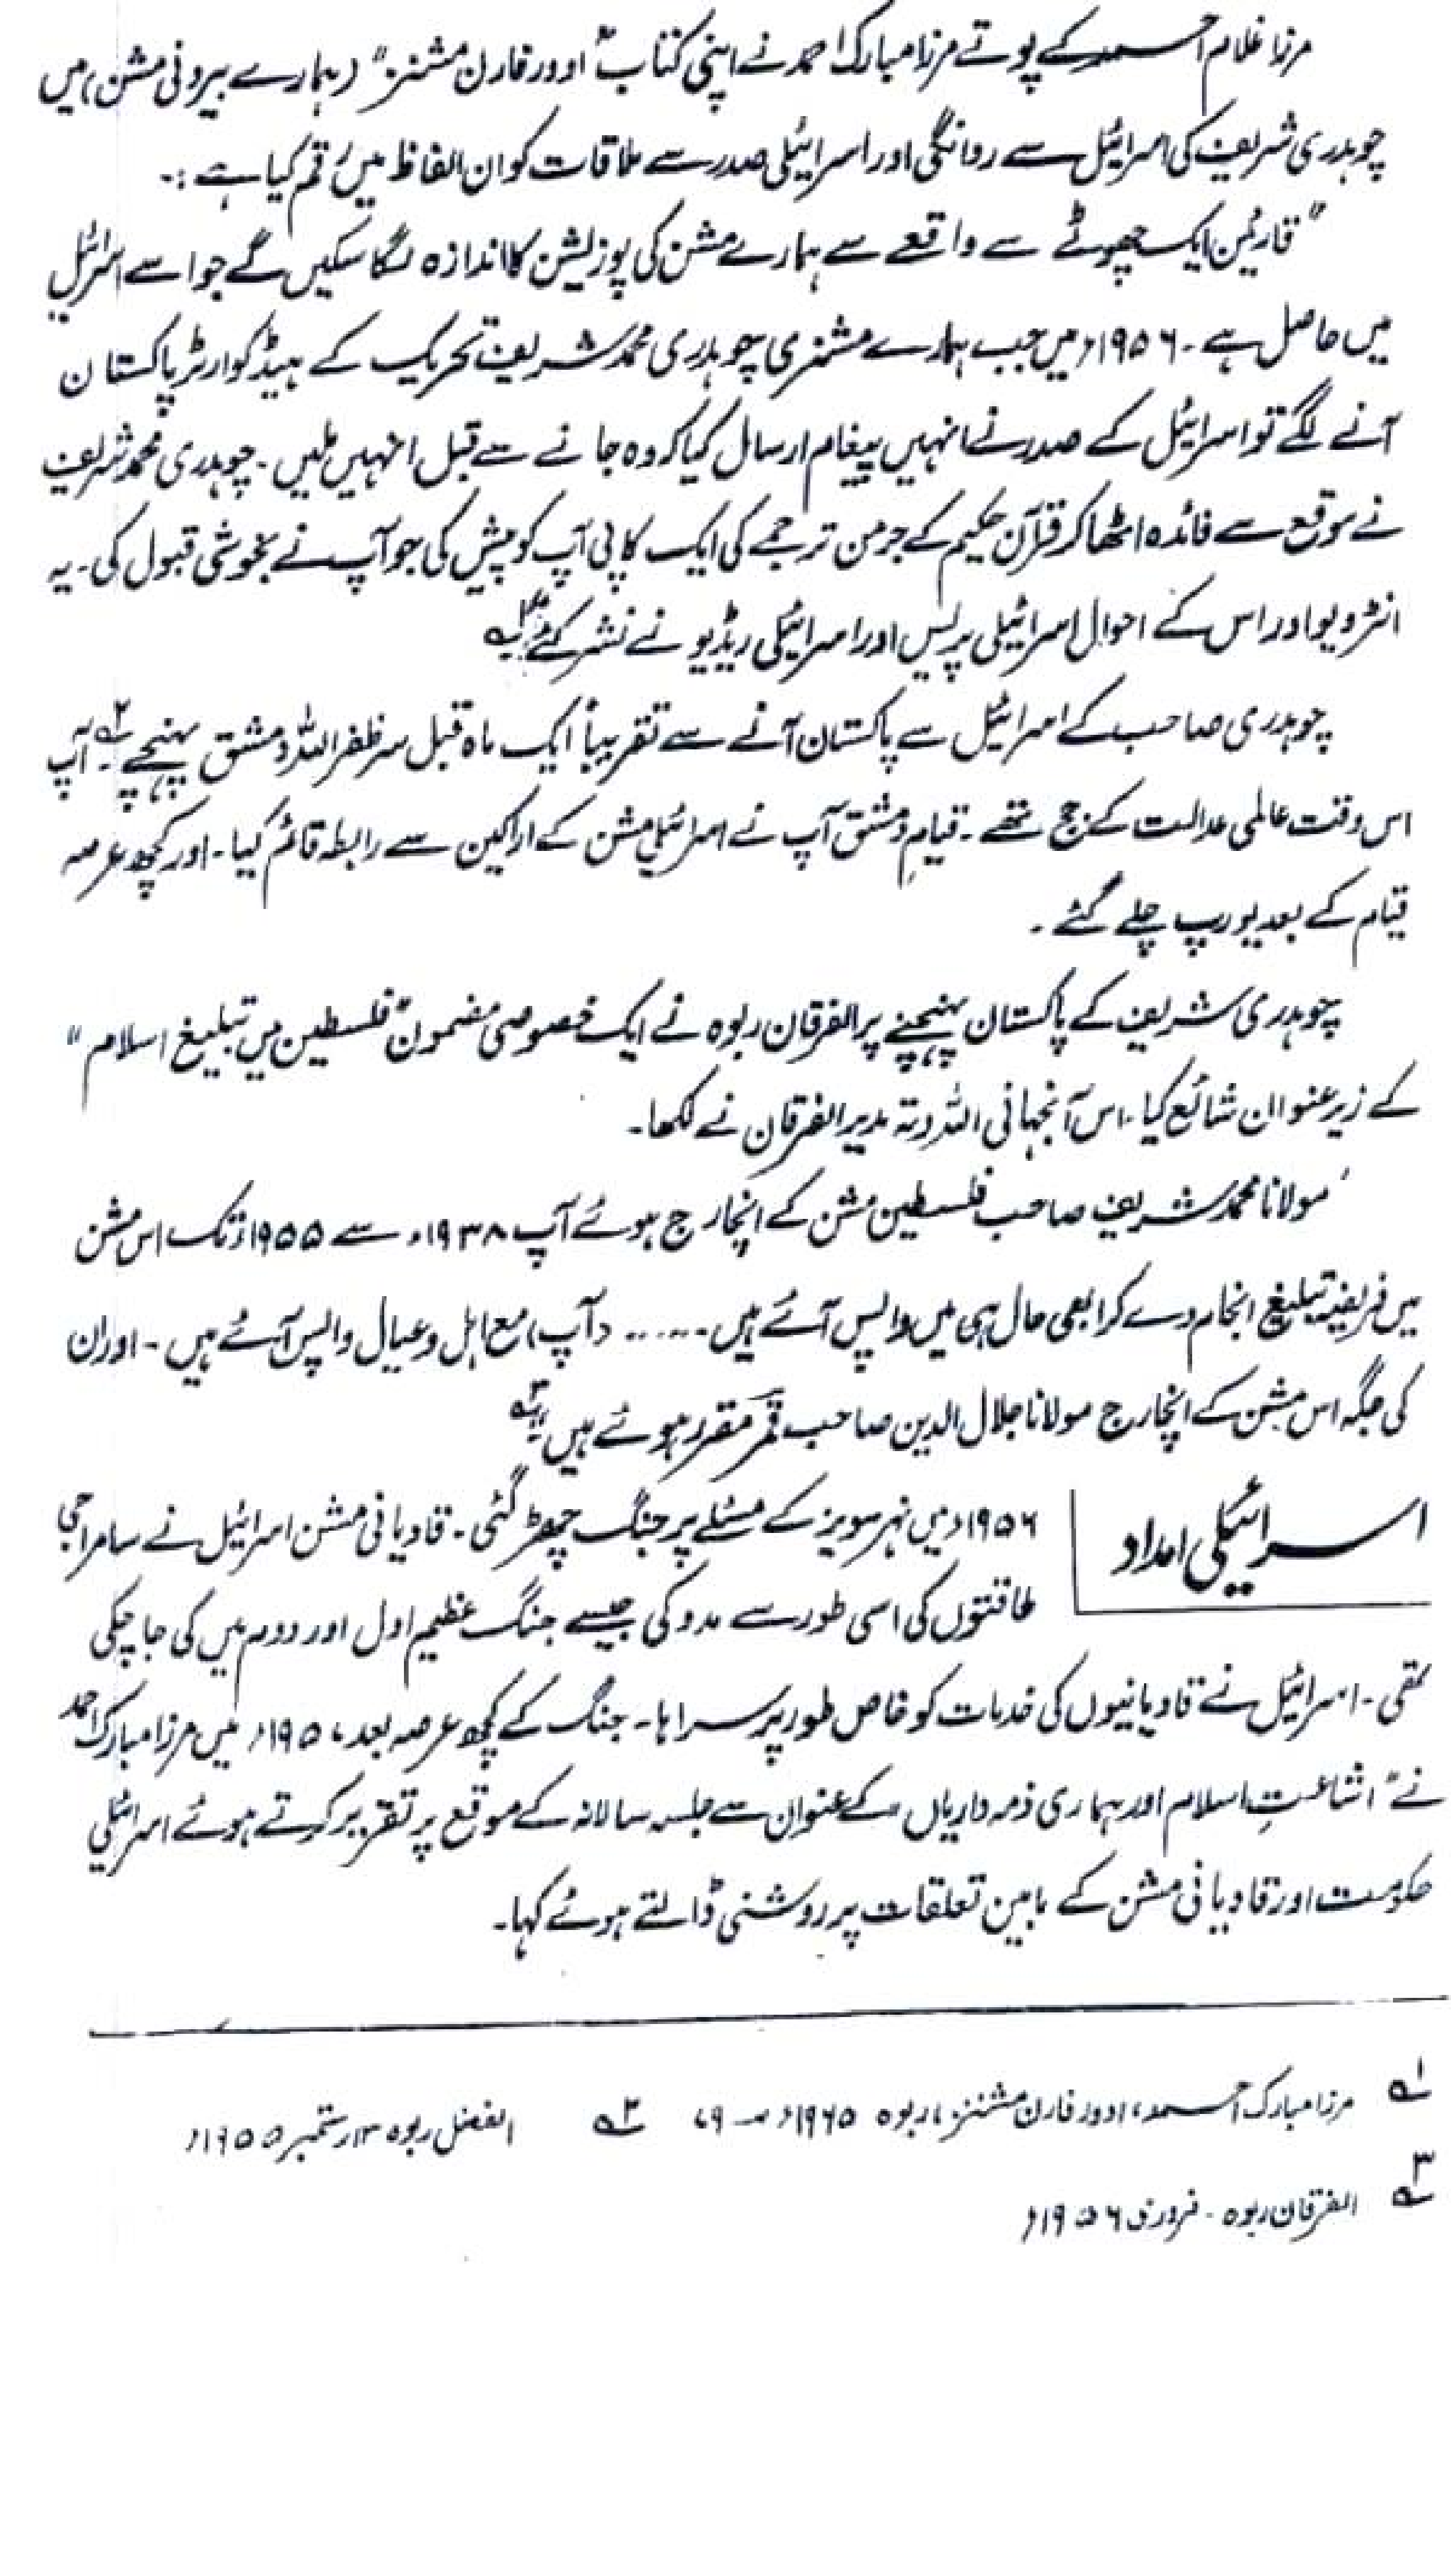 مرزا غلام احمد کے پوتے مرزا مبارک احمد نے اپنی کتاب "اوور فارن مشنز" (ہمارے بیرونی مشن) میں
چوہدری شریف کی اسرائیل سے روانگی اور اسرائیلی صدر سے ملاقات کو ان الفاظ میں رقم کیا ہے :۔
"قارئین ایک چھوٹے سے واقعے سے ہمارے مشن کی پوزیشن کا اندازہ لگا سکیں گے جو اسے اسرائیل
میں حاصل ہے ۔ ۱۹۵۶ء میں جب ہمارے مشنری چوہدری محمد شریف تحریک کے ہیڈ کوارٹر پاکستان
آنے لگے تو اسرائیل کے صدر نے انہیں پیغام ارسال کیا کہ وہ جانے سے قبل انہیں ملیں ۔ چوہدری محمد شریف
نے موقع سے فائدہ اٹھا کر قرآن حکیم کے جرمن ترجمے کی ایک کاپی آپ کو پیش کی جو آپ نے بخوشی قبول کی ۔ یہ
انٹرویو اور اس کے احوال اسرائیلی پریس اور اسرائیلی ریڈیو نے نشر کئے" ۱ے
چوہدری صاحب کے اسرائیل سے پاکستان آنے سے تقریباً ایک ماہ قبل سر ظفر اللہ دمشق پہنچے ۲ے ۔ آپ
اس وقت عالمی عدالت کے جج تھے ۔ قیامِ دمشق آپ نے اسرائیلی مشن کے اراکین سے رابطہ قائم کیا ۔ اور کچھ عرصہ
قیام کے بعد یورپ چلے گئے ۔
چوہدری شریف کے پاکستان پہنچنے پر الفرقان ربوہ نے ایک خصوصی مضمون "فلسطین میں تبلیغ اسلام"
کے زیر عنوان شائع کیا ۔ اس آنجہانی اللہ دتہ مدیر الفرقان نے لکھا ۔
'مولانا محمد شریف صاحب فلسطین مشن کے انچارج ہوئے آپ ۱۹۳۸ء سے ۱۹۵۵ء تک اس مشن
میں فریضہ تبلیغ انجام دے کر ابھی حال ہی میں واپس آئے ہیں ۔ ..... (آپ) مع اہل و عیال واپس آئے ہیں ۔ اور ان
کی جگہ اس مشن کے انچارج مولانا جلال الدین صاحب قمر مقرر ہوئے ہیں" ۳ے
اسرائیلی امداد
۱۹۵۶ء میں نہر سویز کے مسئلے پر جنگ چھڑ گئی ۔ قادیانی مشن اسرائیل نے سامراجی
طاقتوں کی اسی طور سے مدد کی جیسے جنگ عظیم اول اور دوم میں کی جا چکی
تھی ۔ اسرائیل نے قادیانیوں کی خدمات کو خاص طور پر سراہا ۔ جنگ کے کچھ عرصہ بعد ۱۹۵۷ء میں مرزا مبارک احمد
نے "اشاعتِ اسلام اور ہماری ذمہ داریاں کے عنوان سے جلسہ سالانہ کے موقع پر تقریر کرتے ہوئے اسرائیلی
حکومت اور قادیانی مشن کے مابین تعلقات پر روشنی ڈالتے ہوئے کہا ۔
۱ے مرزا مبارک احمد، اوور فارن مشنز، ربوہ ۱۹۶۵ء ص ۷۹ ۲ے الفضل ربوہ ستمبر ۱۹۵۵ء
۳ے الفرقان ربوہ ۔ فروری ۱۹۵۶ء